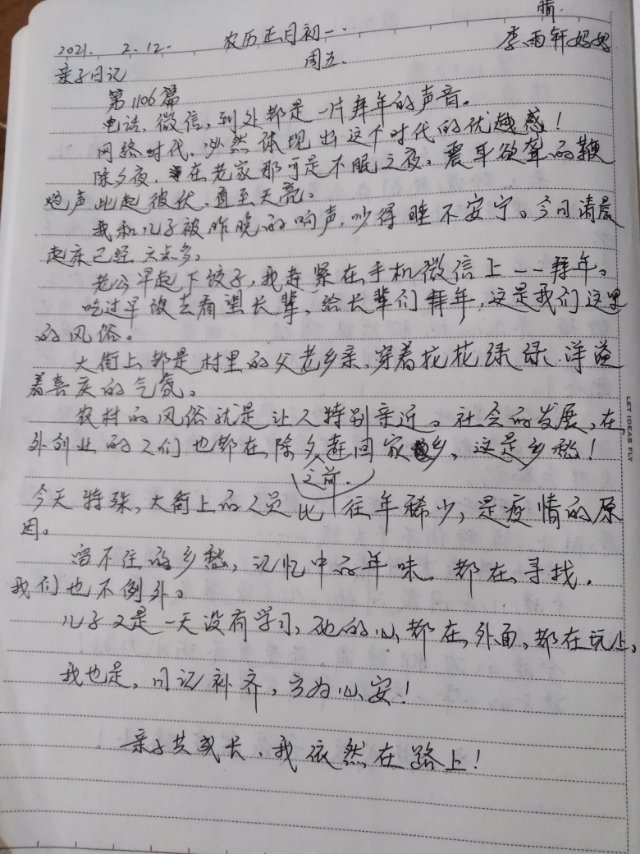 晴.
2021. 2.12. 农历正月初一. 李雨轩妈妈
亲子日记 周五.
第1106篇
电话.微信,到处都是一片拜年的声音。
网络时代,必然体现出这个时代的优越感!
除夕夜,在老家那可是不眠之夜,震耳欲聋的鞭
炮声此起彼伏,直至天亮。
我和儿子被昨晚的响声,吵得睡不安宁。今日清晨
起床已经六点多。
老公早起下饺子,我赶紧在手机微信上一一拜年。
吃过早饭去看望长辈,给长辈们拜年,这是我们这里
的风俗。
大街上都是村里的父老乡亲,穿着花花绿绿,洋溢
着喜庆的气氛。
农村的风俗就是让人特别亲近。社会的发展,在
外创业的人们也都在除夕赶回家乡,这是乡愁!
之前.
今天特殊,大街上的人员比往年稀少,是疫情的原
因。
留不住的乡愁,记忆中的年味,都在寻找.
我们也不例外。
儿子又是一天没有学习,他的心都在外面,都在玩上。
我也是,日记补齐,方为心安!
亲子共成长,我依然在路上!
LET IDEAS FLY